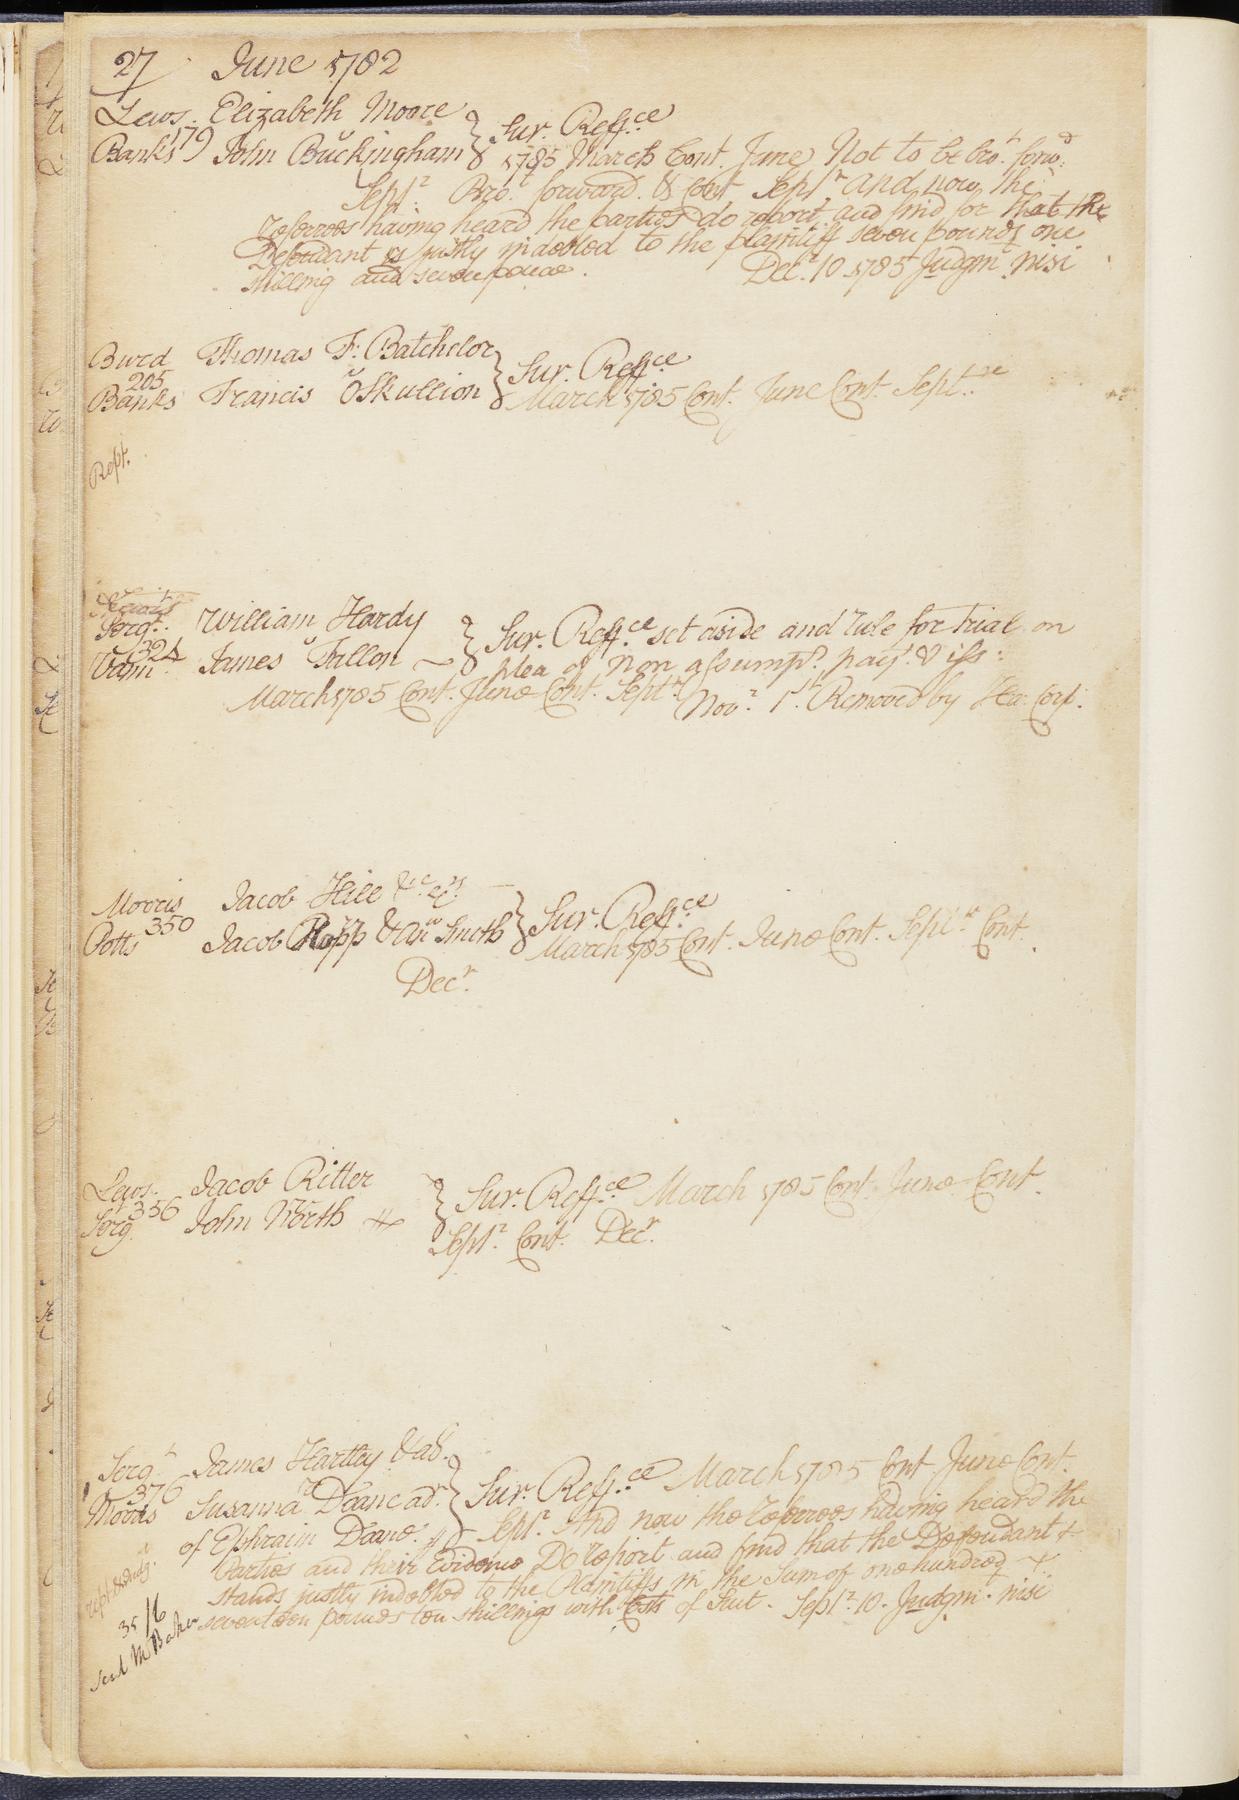 27 June 1782
Lews. Elizabeth Moore } Sur. Reffce
Banks 179) John Buckingham 1785 March Cont. June Not to be bro.t forw.d
Sept.r Bro.t forward. & Cont Sept.r and now the
referrees having heard the parties do report and find for that the
Defendant is justly indebted to the plaintiff seven pounds one
shilling and seven pence. Dec.r 10 1785 Judgm.t nisi
Burd Thomas F: Batchelor } Sur. Reffce
205
Banks Francis OSkullion March 1785 Cont. June Cont. Sept.
Rept.
Serg.t William Hardy } Sur. Reffce set aside and rule for trial on
324
James Fallon plea of non assump.t pay.t & iss:
March 1785 Cont. June Cont. Sept.r Nov.r 1.st Removed by Ha: Corp:
Morris Jacob Hill &c } Sur. Reffce
Potts 350 Jacob Ropp & An.w Smith March 1785 Cont. June Cont. Sept.r Cont.
Dec.r
Lews. Jacob Ritter } Sur. Reffce March 1785 Cont. June Cont.
Serg.t 356 John North Sept.r Cont. Dec.r
Serg.t James Hartley & al. } Sur. Reffce March 1785 Cont June Cont.
376
Moods Susanna Doane ad.r Sept.r And now the referrees having heard the
of Ephraim Doane
Parties and their Evidence Do report and find that the Defendant
stands justly indebted to the Plaintiffs in the Sum of one hundred
seventeen pounds ten shillings with Costs of Suit. Sept.r 10. Judgm.t nisi
35/6